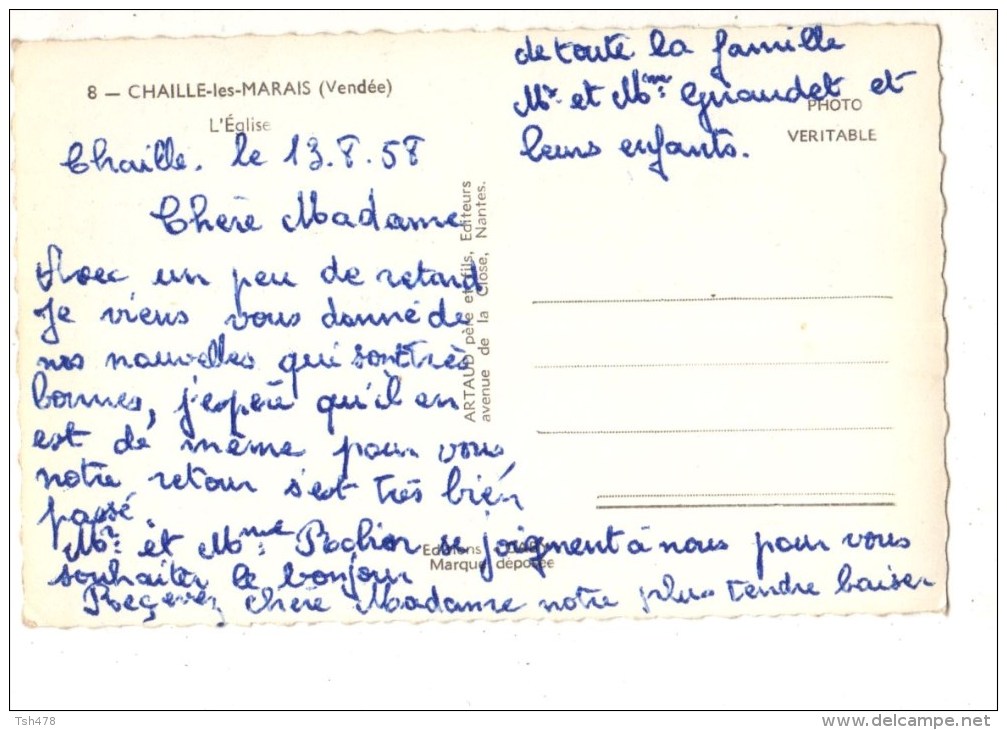 8 — CHAILLE-les-MARAIS (Vendée)
L'Église
Chaille. le 13.8.58
Chère Madame
Avec un peu de retard
Je viens vous donné de
nos nouvelles qui sont très
bonnes, j'espère qu'il en
est de même pour vous,
notre retour s'est très bien
passé
Mr. et Mme. Rochier se joignent à nous pour vous
souhaiter le bonjour
Recevez chère Madame notre plus tendre baiser
de toute la famille
Mr. et Mme. Griaudet et
leurs enfants.
PHOTO
VERITABLE
ARTAUD père et fils, Editeurs
avenue de la Close, Nantes.
Editions
Marque déposée
Tsh478
www.delcampe.net